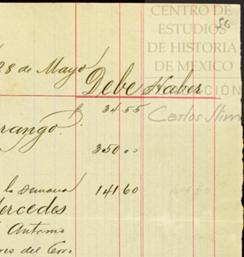 50
CENTRO DE
ESTUDIOS
DE HISTORIA
DE MEXICO
28 de Mayo
Debe Haber
$ 34.55
rango.
Carlos Slim
350 00
la semana 141.60
Mercedes
Antonio
del Cerr